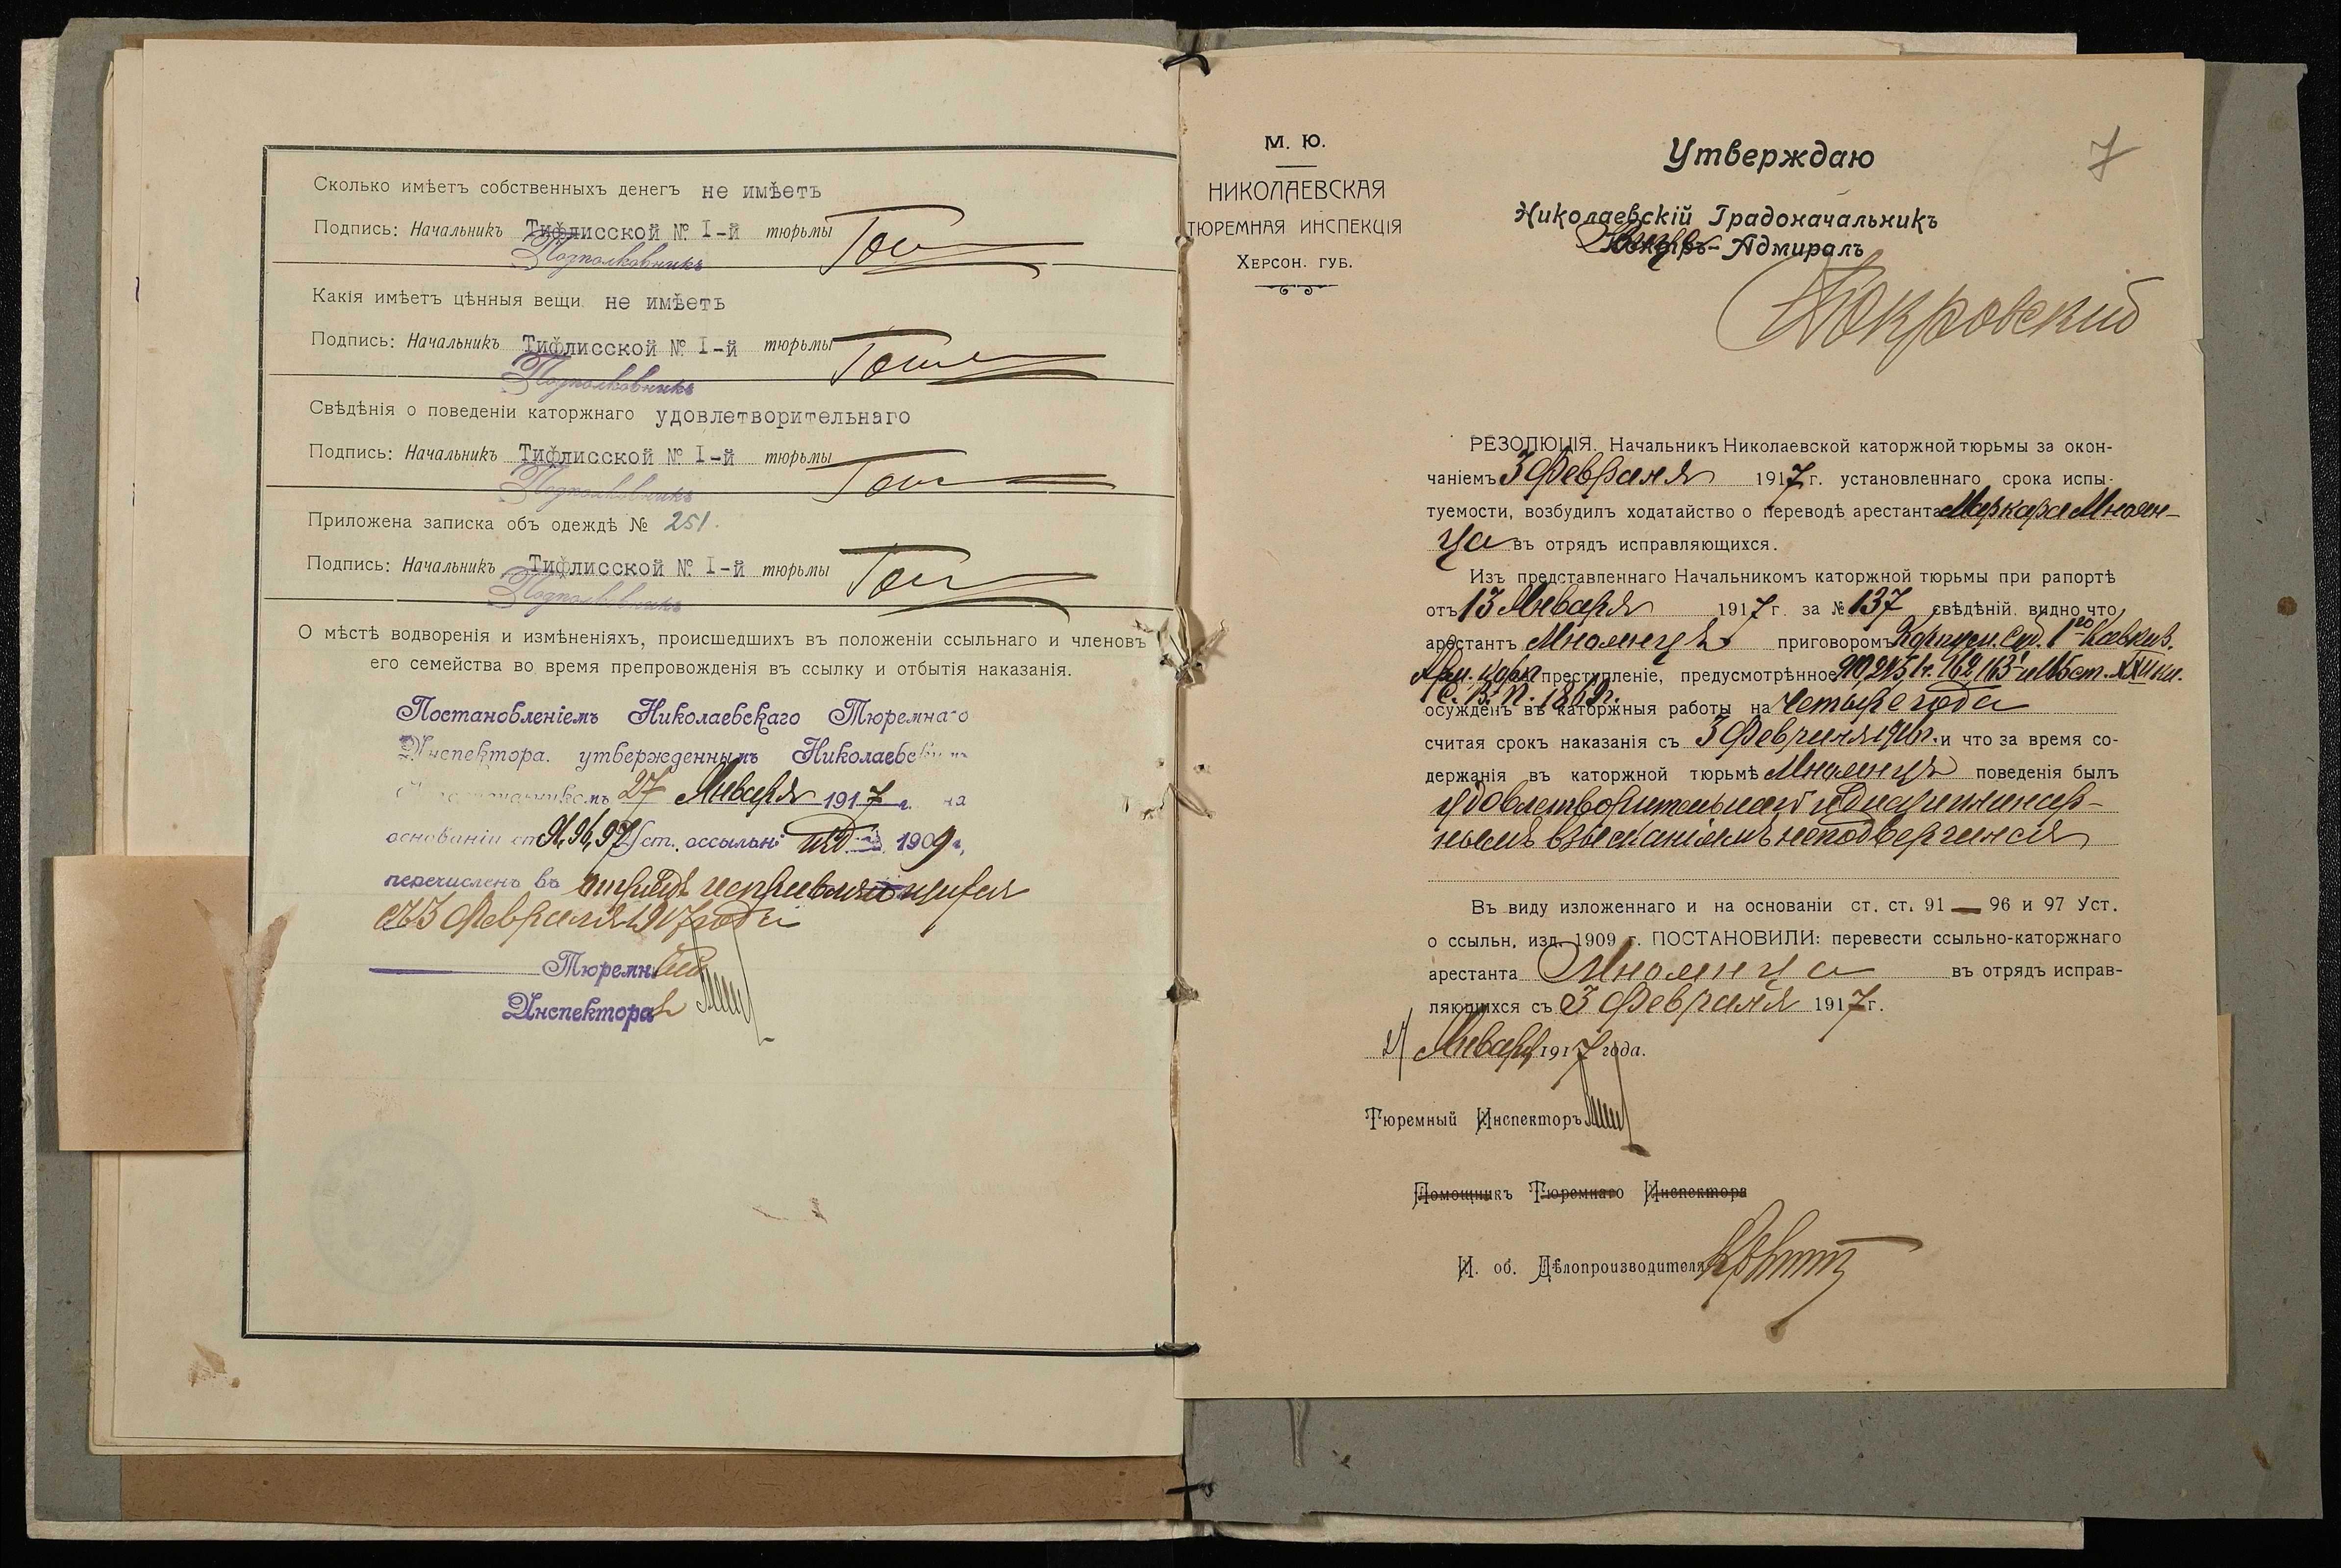 Сколько имѣетъ собственныхъ денегъ не имѣетъ
Подпись: Начальникъ Тифлисской № I-й тюрьмы
Подполковникъ
Какія имѣетъ цѣнныя вещи не имѣетъ
Подпись: Начальникъ Тифлисской № I-й тюрьмы
Подполковникъ
Свѣдѣнія о поведеніи каторжнаго удовлетворительнаго
Подпись: Начальникъ Тифлисской № I-й тюрьмы
Подполковникъ
Приложена записка объ одеждѣ № 251.
Подпись: Начальникъ Тифлисской № I-й тюрьмы
Подполковникъ
О мѣстѣ водворенія и измѣненіяхъ, происшедшихъ въ положеніи ссыльнаго и членовъ
его семейства во время препровожденія въ ссылку и отбытія наказанія.
Постановленіемъ Николаевскаго Тюремнаго
Инспектора, утвержденнымъ Николаевскимъ
27 Января 1917 г. на
основаніи ст 91, 96, 97 ст. о ссыльн изд. 1909 г.,
перечисленъ въ отрядъ исправляющихся
съ 3 Февраля 1917 года
Тюремн
Инспектора
М. Ю.
НИКОЛАЕВСКАЯ
ТЮРЕМНАЯ ИНСПЕКЦІЯ
ХЕРСОН. ГУБ.
7
Утверждаю
Николаевскій Градоначальникъ
Вице Контръ-Адмиралъ
Покровскій
РЕЗОЛЮЦІЯ. Начальникъ Николаевской каторжной тюрьмы за окон-
чаніемъ 3 Февраля 1917 г. установленнаго срока испы-
туемости, возбудилъ ходатайство о переводѣ арестанта Маркара Мнаян-
ца въ отрядъ исправляющихся.
Изъ представленнаго Начальникомъ каторжной тюрьмы при рапортѣ
отъ 13 Января 1917 г. за № 137 свѣдѣній видно, что
арестантъ Мнаянцъ приговоромъ Корпусн. Суд. 1го Кавказ.
Арм. корп преступленіе, предусмотрѣнное 162, 163 ст. XXII кн.
С. В. П. 1869 г.
осужденъ въ каторжныя работы на четыре года
считая срокъ наказанія съ 3 Февраля 1916 г. и что за время со-
держанія въ каторжной тюрьмѣ Мнаянцъ поведенія былъ
удовлетворительнаго и дисциплинар-
нымъ взысканіямъ не подвергался
Въ виду изложеннаго и на основаніи ст. ст. 91 — 96 и 97 Уст.
о ссыльн, изд. 1909 г. ПОСТАНОВИЛИ: перевести ссыльно-каторжнаго
арестанта Мнаянца въ отрядъ исправ-
ляющихся съ 3 Февраля 1917 г.
Января 1917 года.
Тюремный Инспекторъ
Помощникъ Тюремнаго Инспектора
И. об. Дѣлопроизводителя